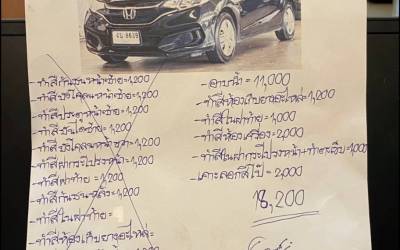 - ทำสีกันชนหน้าซ้าย=1,200
- ทำสีบังโคลนหน้าซ้าย=1,200
- ทำสีประตูหน้าซ้าย=1,200
- ทำสี ซ้าย=1,200
- ทำสีบังโคลนหน้าขวา=1,200
- ทำสีฝากระโปรงหน้า=1,200
- ทำสีฝาท้าย=1,200
- ทำสีกันชนหลัง=1,200
- ทำสีในฝาท้าย=
- ทำสีห้องเก็บยางอะไหล่=
- อาบน้ำ=11,000
- ทำสีห้องเก็บยางอะไหล่=1,200
- ทำสีในฝาท้าย=1,000
- ทำสีห้องเครื่อง=2,000
- ทำสีในฝากระโปรงหน้า+ =1,000
- เคาะลอกสีโป๊=2,000
18,200